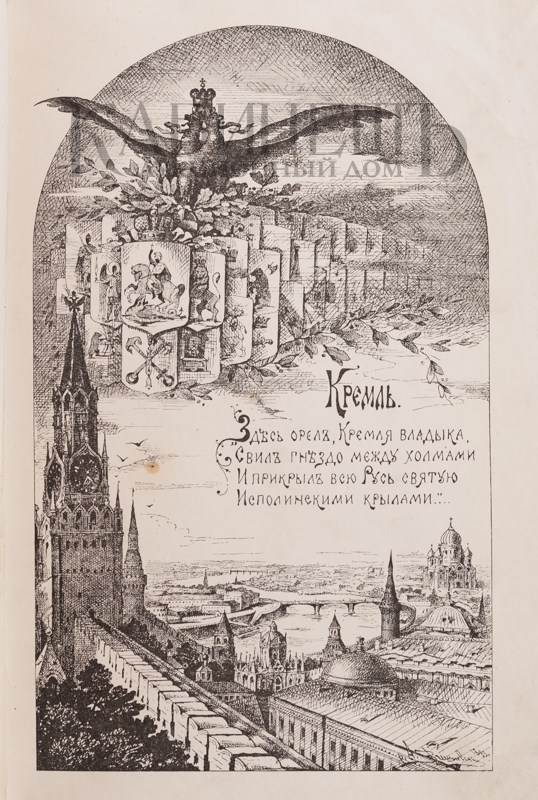 КАБИНЕТЪ
АУКЦИОННЫЙ ДОМ
Кремль.
Здѣсь орелъ, Кремля владыка,
Свилъ гнѣздо между холмами
И прикрылъ всю Русь святую
Исполинскими крылами."...